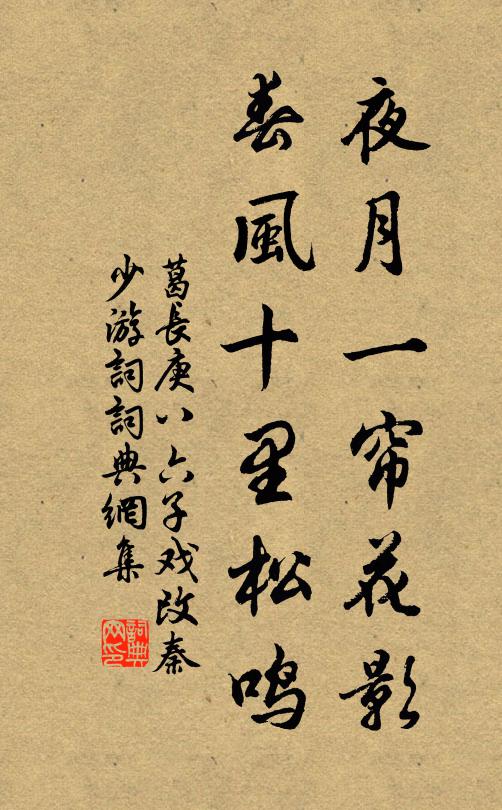 夜月一帘花影
春風十里松鸣
葛長庚八六子戏改秦
少游詞詞典網集
詞典网印